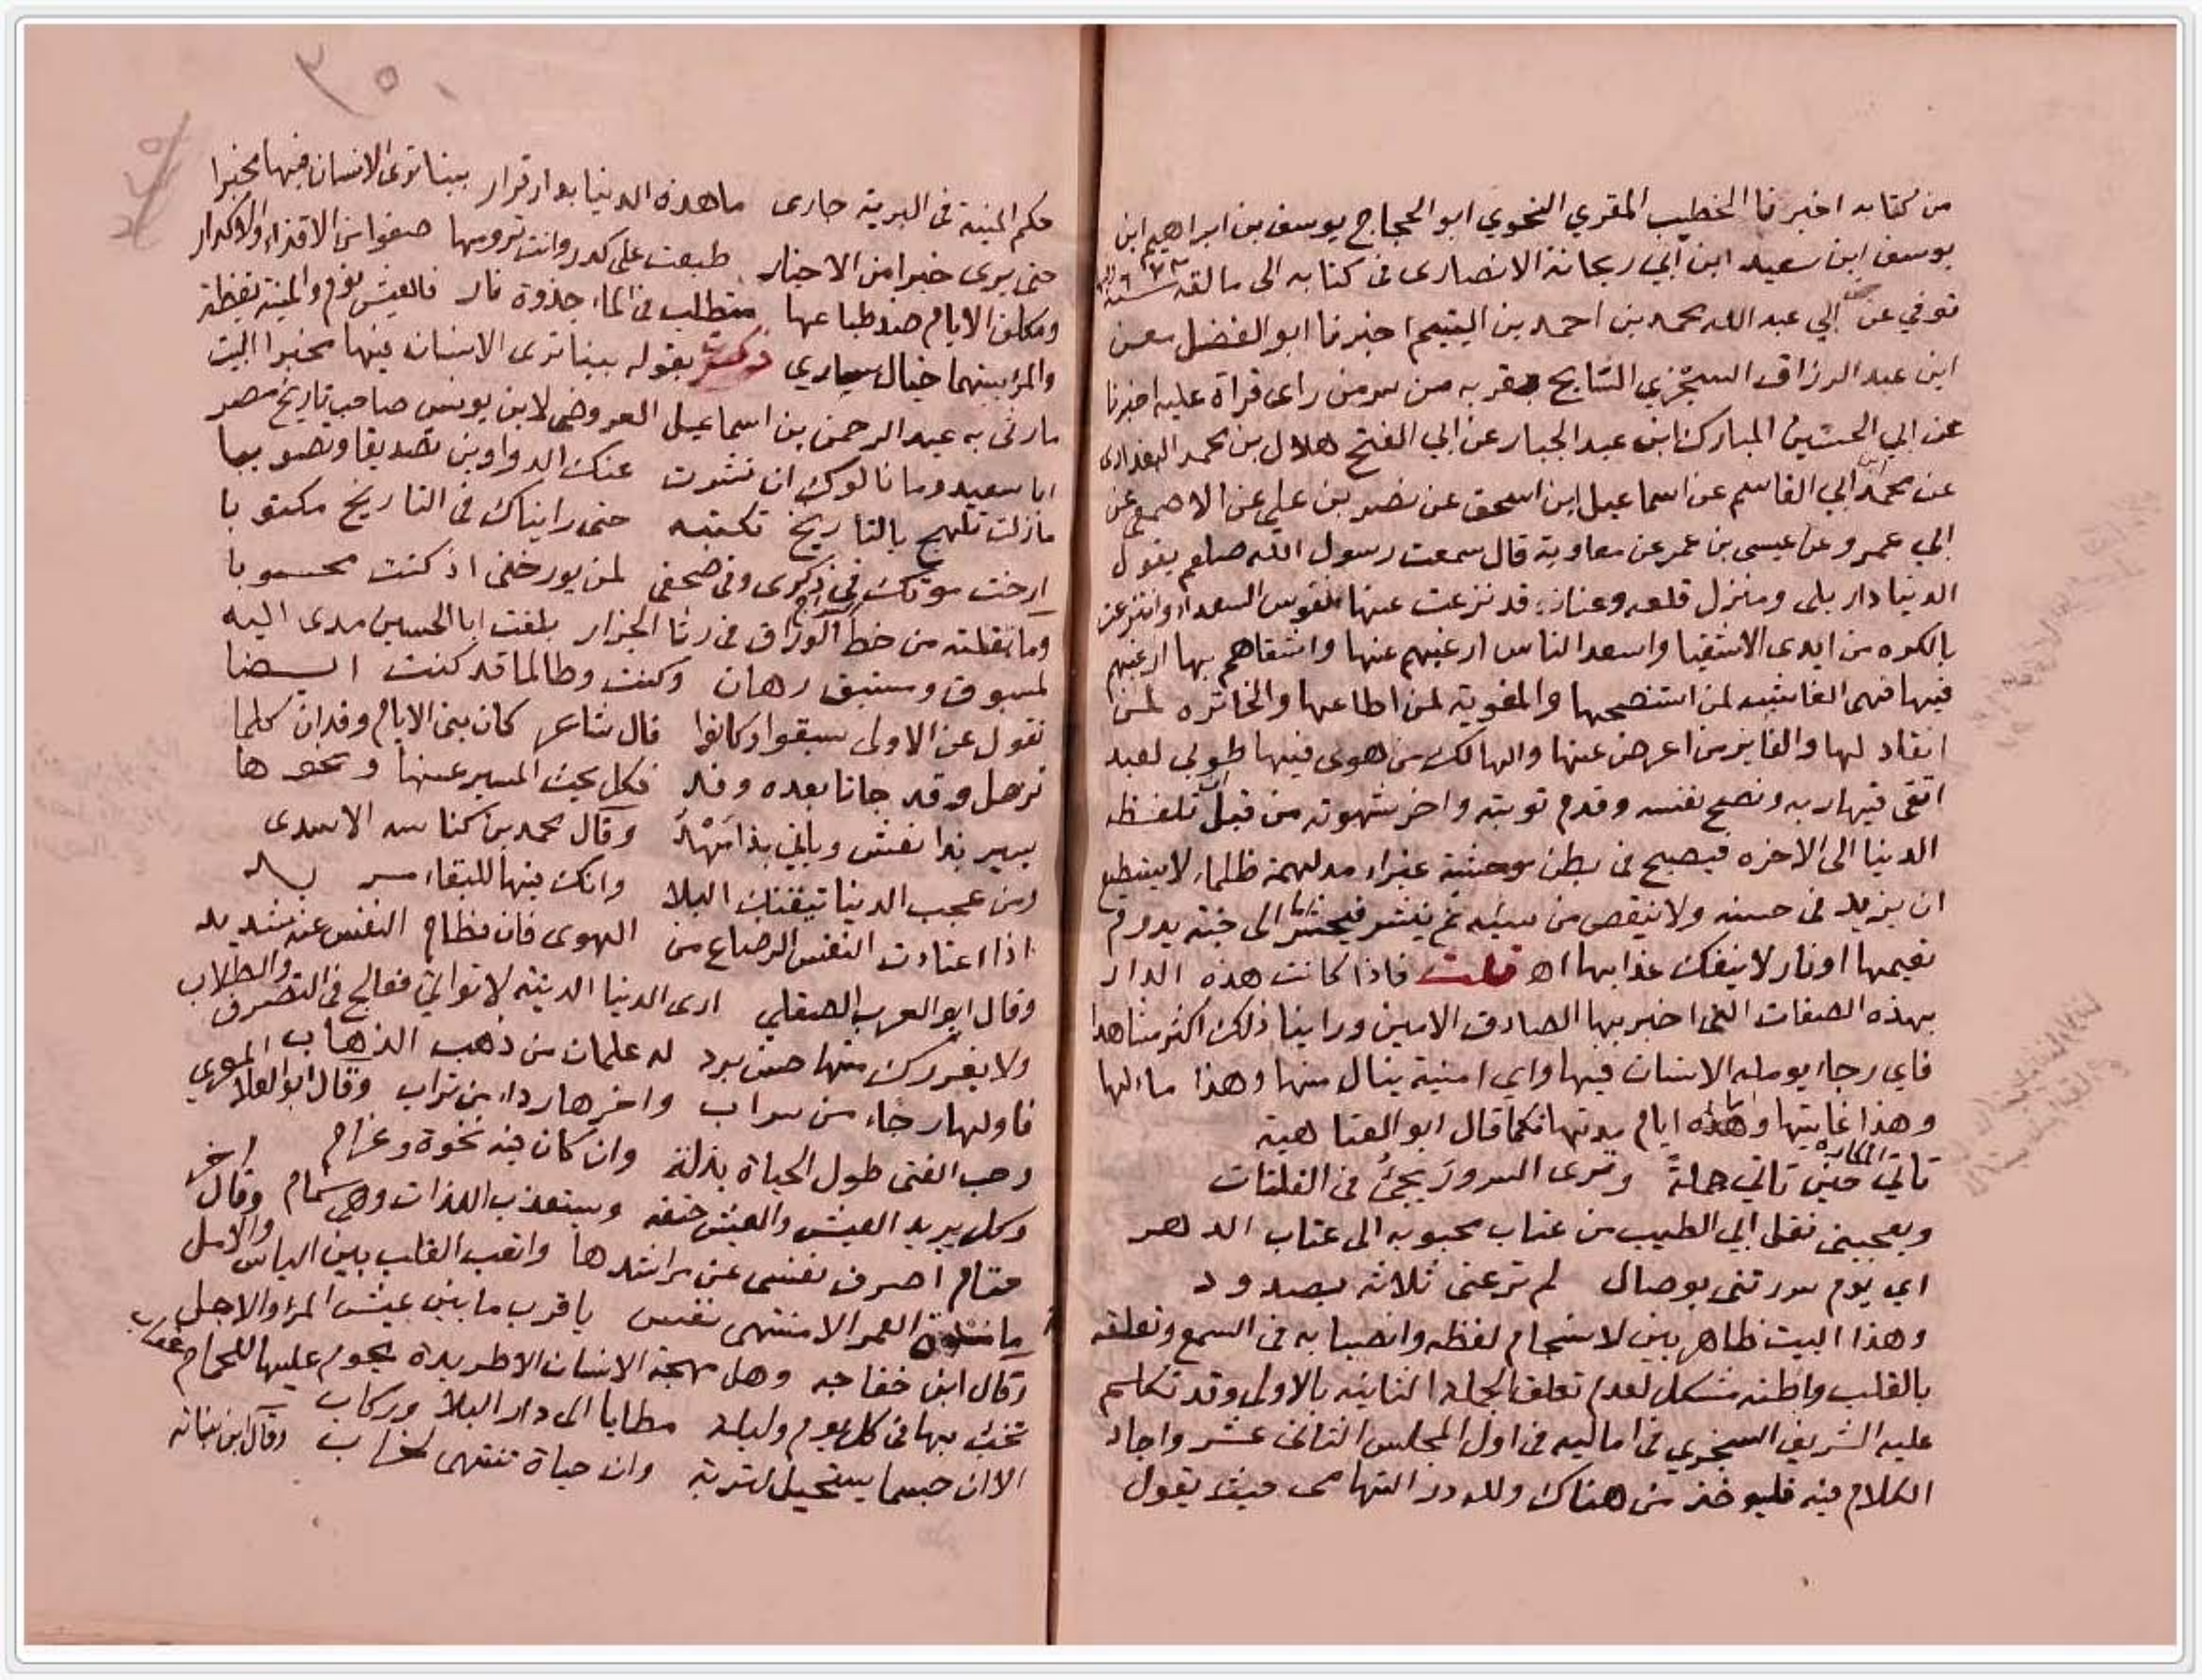 من كتابه اخبرنا الخطيب المقري النحوي ابو الحجاج يوسف بن ابراهيم ابن
يوسف ابن سعيد ابن ابي ريحانة الانصارى فى كتابه الى مالقه سنة ٦٧٢
توفي عن ابي عبد الله محمد بن احمد بن اليتيم اخبرنا ابو الفضل
ابن عبد الرزاق السجزي السايح بقربه من سر من راى قراة عليه اخبرنا
عن ابي الحسين المبارك ابن عبد الجبار عن ابي الفتح هلال بن محمد البغدادى
عن محمد ابي القاسم عن اسماعيل ابن اسحق عن نصر بن علي عن الاصمعى عن
ابي عمرو عن عيسى بن عمر عن معاوية قال سمعت رسول الله صلعم يقول
الدنيا دار بلى ومنزل قلعه وعنا قد نزعت عنها نفوس السعدا وانتزعت
بالكره من ايدى الاشقيا واسعد الناس ارغبهم عنها واشقاهم بها ارغبهم
فيها فهى الغاشيه لمن استنصحها والمغوية لمن اطاعها والخاتره لمن
انقاد لها والفايز من اعرض عنها والهالك من هوى فيها طوبى لعبد
اتقى فيها ربه ونصح نفسه وقدم توبته واخر شهوته من قبل ان تلفظه
الدنيا الى الاخره فيصبح فى بطن موحشة غبراء مدلهمة ظلماء لا يستطيع
ان يزيد فى حسنه ولا ينقص من سيئه ثم ينشر فيحشر اما الى جنة يدوم
نعيمها او نار لا ينفك عذابها اه قلت فاذا كانت هذه الدار
بهذه الصفات التى اخبر بها الصادق الامين وراينا ذلك اكثر مشاهدا
فاي رجاء يومله الانسان فيها واي امنية ينال منها وهذا مالها
وهذا غايتها واما هذه ايام مدتها فكما قال ابو العتاهية
تاتي المكاره حين تاتي جملةً وترى السرور يجئ فى الفلتات
ويعجبنى نقل ابي الطيب من عتاب محبوبه الى عتاب الدهر
اي يوم سررتنى بوصال لم ترعنى ثلاثة بصدود
وهذا البيت ظاهر بين لانسجام لفظه وانصبابه فى السمع وتعلقه
بالقلب واظنه مشكل لعدم تعلق الجملة الثانيه بالاولى وقد تكلم
عليه الشريف السجزي فى اماليه فى اول المجلس الثانى عشر واجاد
الكلام فيه فليوخذ من هناك ولله در التهامى حيث يقول
٣٥٠
حكم المنية فى البرية جارى ما هذه الدنيا بدار قرار بينا ترى الانسان فيها مخبرا
حتى يرى خبرا من الاخبار طبعت على كدر وانت ترومها صفوا من الاقذاء والاكدار
ومكلف الايام ضد طباعها متطلب فى الماء جذوة نار فالعيش نوم والمنية يقظة
والمرء بينهما خيال ساري ذكرت بقوله بينا ترى الانسان فيها مخبرا البيت
ما رثى به عبد الرحمن بن اسماعيل العروضى لابن يونس صاحب تاريخ مصر
ابا سعيد وما نالوك ان نشرت عنك الدواوين تصديقا وتصويبا
مازلت تلهج بالتاريخ تكتبه حتى رايناك فى التاريخ مكتوبا
ارخت موتك فى ذكرى وفى صحفى لمن يورخنى اذ كنت محسوبا
ومما نقلته من خط السراج الوراق فى رثا الجزار بلغت ابا الحسين مدى اليه
لمسبوق وسبق رهان وكنت وطالما قد كنت ايضا
تقول عن الاولى سبقوا وكانوا قال شاعر كان بنى الايام وفدان كلما
ترحل وفد جانا بعده وفد فكل يحث السير عنها ونحوها
يسير بذا نعش وياتي بذا مَهْدُ وقال محمد بن كناسه الاسدى
ومن عجب الدنيا تبقيك البلا وانك فيها للبقاء مريد
اذا اعتادت النفس الرضاع من الهوى فان فطام النفس عنه شديد
وقال ابو العرب الصقلي ارى الدنيا الدنية لا تواتي فعالج فى التصرف والطلاب
ولا يغررك منها حسن برد له علمان من ذهب الذهاب
فاولها رجاء من سراب واخرها رداء من تراب وقال ابو العلا المعري
وحب الفتى طول الحياة يذله وان كان فيه نخوة وعرام
وكل يريد العيش والعيش حتفه ويستعذب اللذات وهي سمام وقال اخر
حتام اصرف نفسى عن مراشدها واتعب القلب بين الياس والامل
العمر الا منتهى نفس يا قرب ما بين عيش المرء والاجل
وقال ابن خفاجه وهل مهجة الانسان الا طريدة يحوم عليها للحمام عقاب
تخب بها فى كل يوم وليلة مطايا الى دار البلا وركاب
الا ان جسما يستحيل لتربة وان حياة تنتهى لخراب وقال ابن نباته